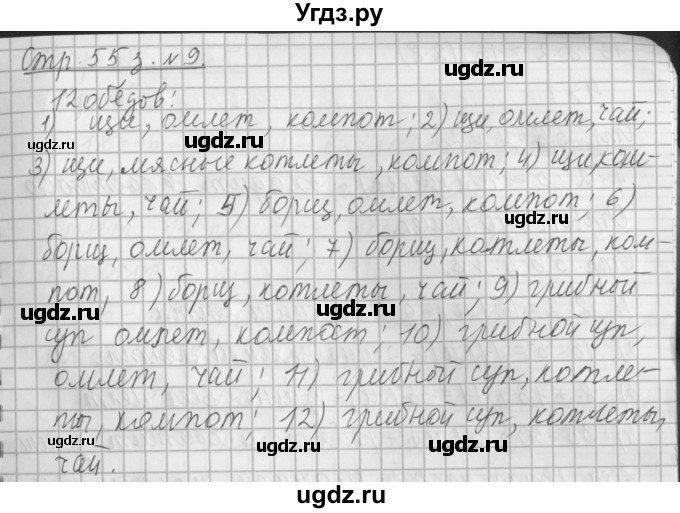 Угдз.ру
Стр. 55 з. №9.
12 обедов:
1) щи, омлет, компот; 2) щи, омлет, чай;
3) щи, мясные котлеты, компот; 4) щи, кот-
леты, чай; 5) борщ, омлет, компот; 6)
борщ, омлет, чай; 7) борщ, котлеты, ком-
пот, 8) борщ, котлеты, чай; 9) грибный
суп омлет, компост; 10) грибной суп,
омлет, чай; 11) грибной суп, котле-
ты, компот; 12) грибной суп, котлеты,
чай.
ugdz.ru
ugdz.ru
ugdz.ru
ugdz.ru
ugdz.ru
ugdz.ru
ugdz.ru
ugdz.ru
ugdz.ru
ugdz.ru
ugdz.ru
ugdz.ru
ugdz.ru